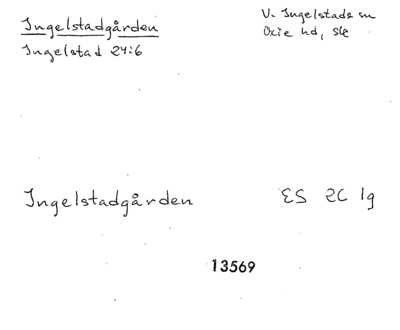 Ingelstadgården
Ingelstad 24:6
V. Ingelstads sn
Oxie hd, Sk
Ingelstadgården
ES 2C 1g
13569